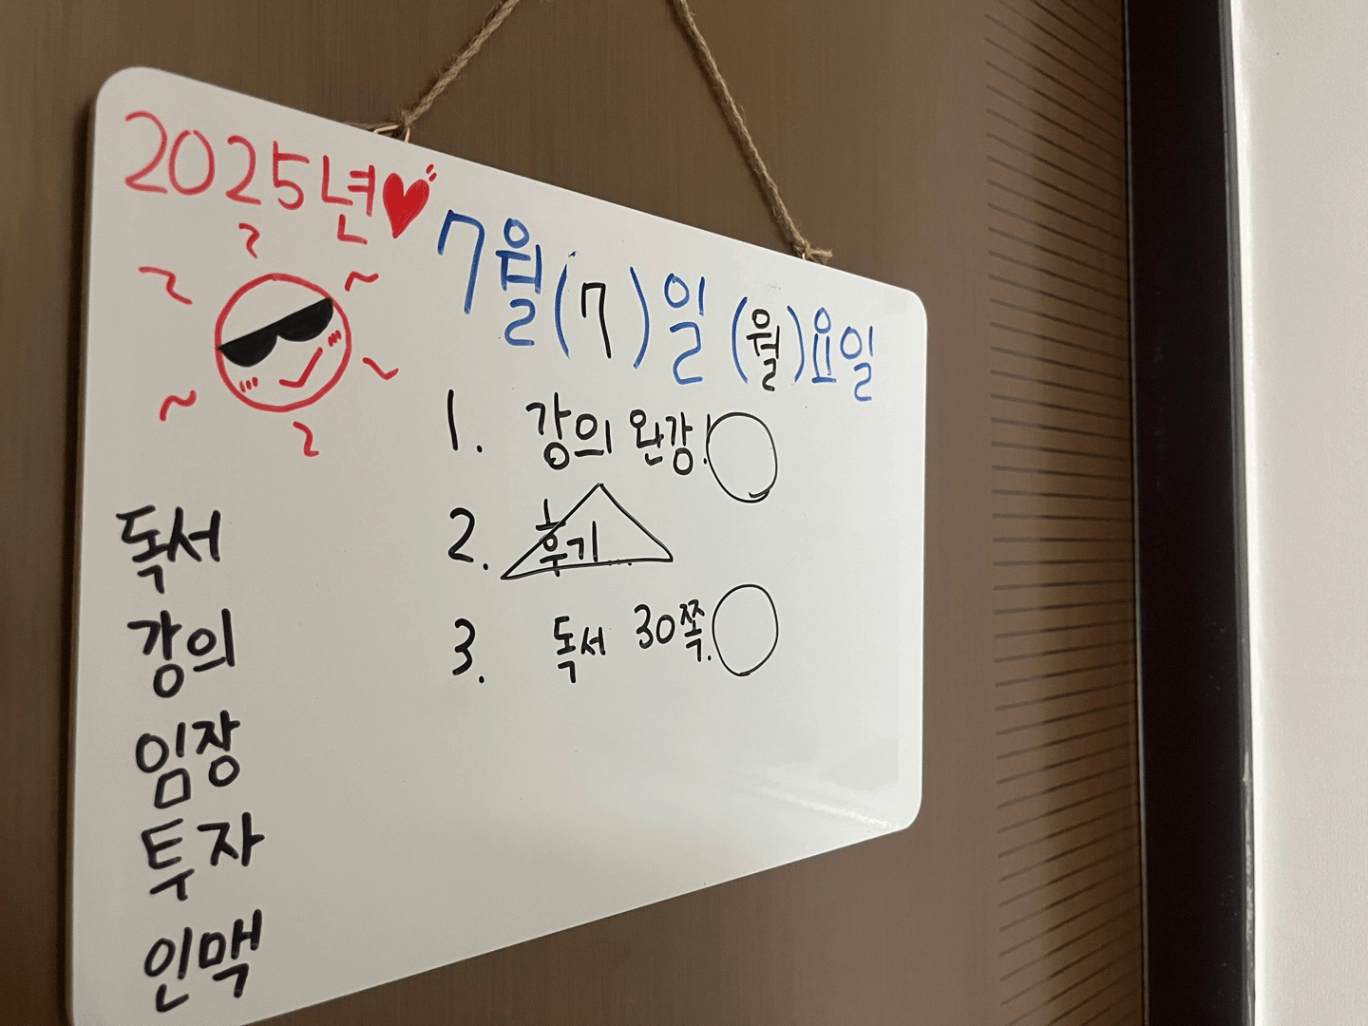 2025년
7월(7)일 (월)요일
1. 강의 완강!
2. 후기
3. 독서 30쪽.
독서
강의
임장
투자
인맥